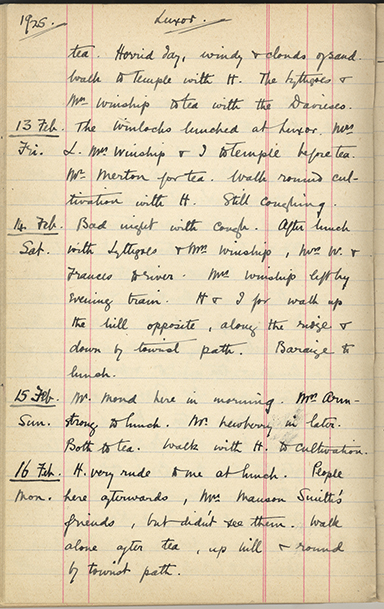 1925. Luxor.
tea. Horrid day, windy & clouds of sand.
Walk to Temple with H. The Lythgoes &
Mrs Winship to tea with the Davieses.
13 Feb. The Winlocks lunched at Luxor. Mrs
Fri. L. Mrs Winship & I to temple before tea.
Mr Merton for tea. Walk round cul-
tivation with H. Still coughing.
14 Feb. Bad night with cough. After lunch
Sat. with Lythgoes & Mrs Winship, Mrs W. &
Frances to river. Mrs Winship left by
evening train. H & I for walk up
the hill opposite, along the ridge &
down by tourist path. Baraize to
lunch.
15 Feb. Mr Mond here in morning. Mr Arm-
Sun. strong to lunch. Mr Newberry in later.
Both to tea. Walk with H. to cultivation.
16 Feb. H. very rude to me at lunch. People
Mon. here afterwards, Mrs Manson Smith's
friends, but didn't see them. Walk
alone after tea, up hill & round
by tourist path.